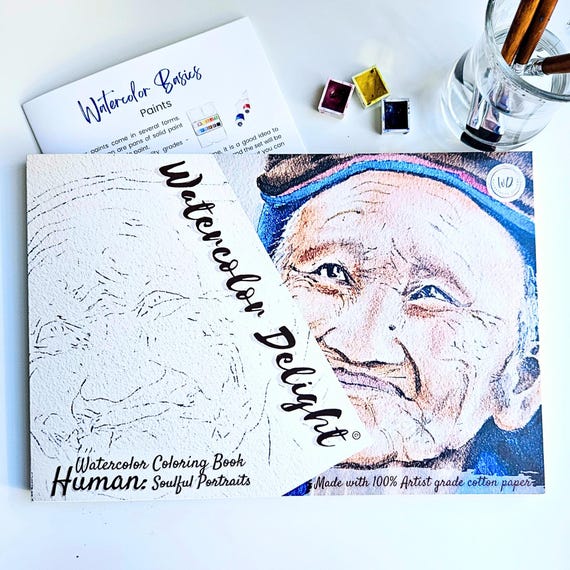 Watercolor Basics
Paints
paints come in several forms.
are pans of solid paint
grades
it is a good idea to
and the set will be
you can
WD
Watercolor Delight©
Watercolor Coloring Book
Human: Soulful Portraits
Made with 100% Artist grade cotton paper